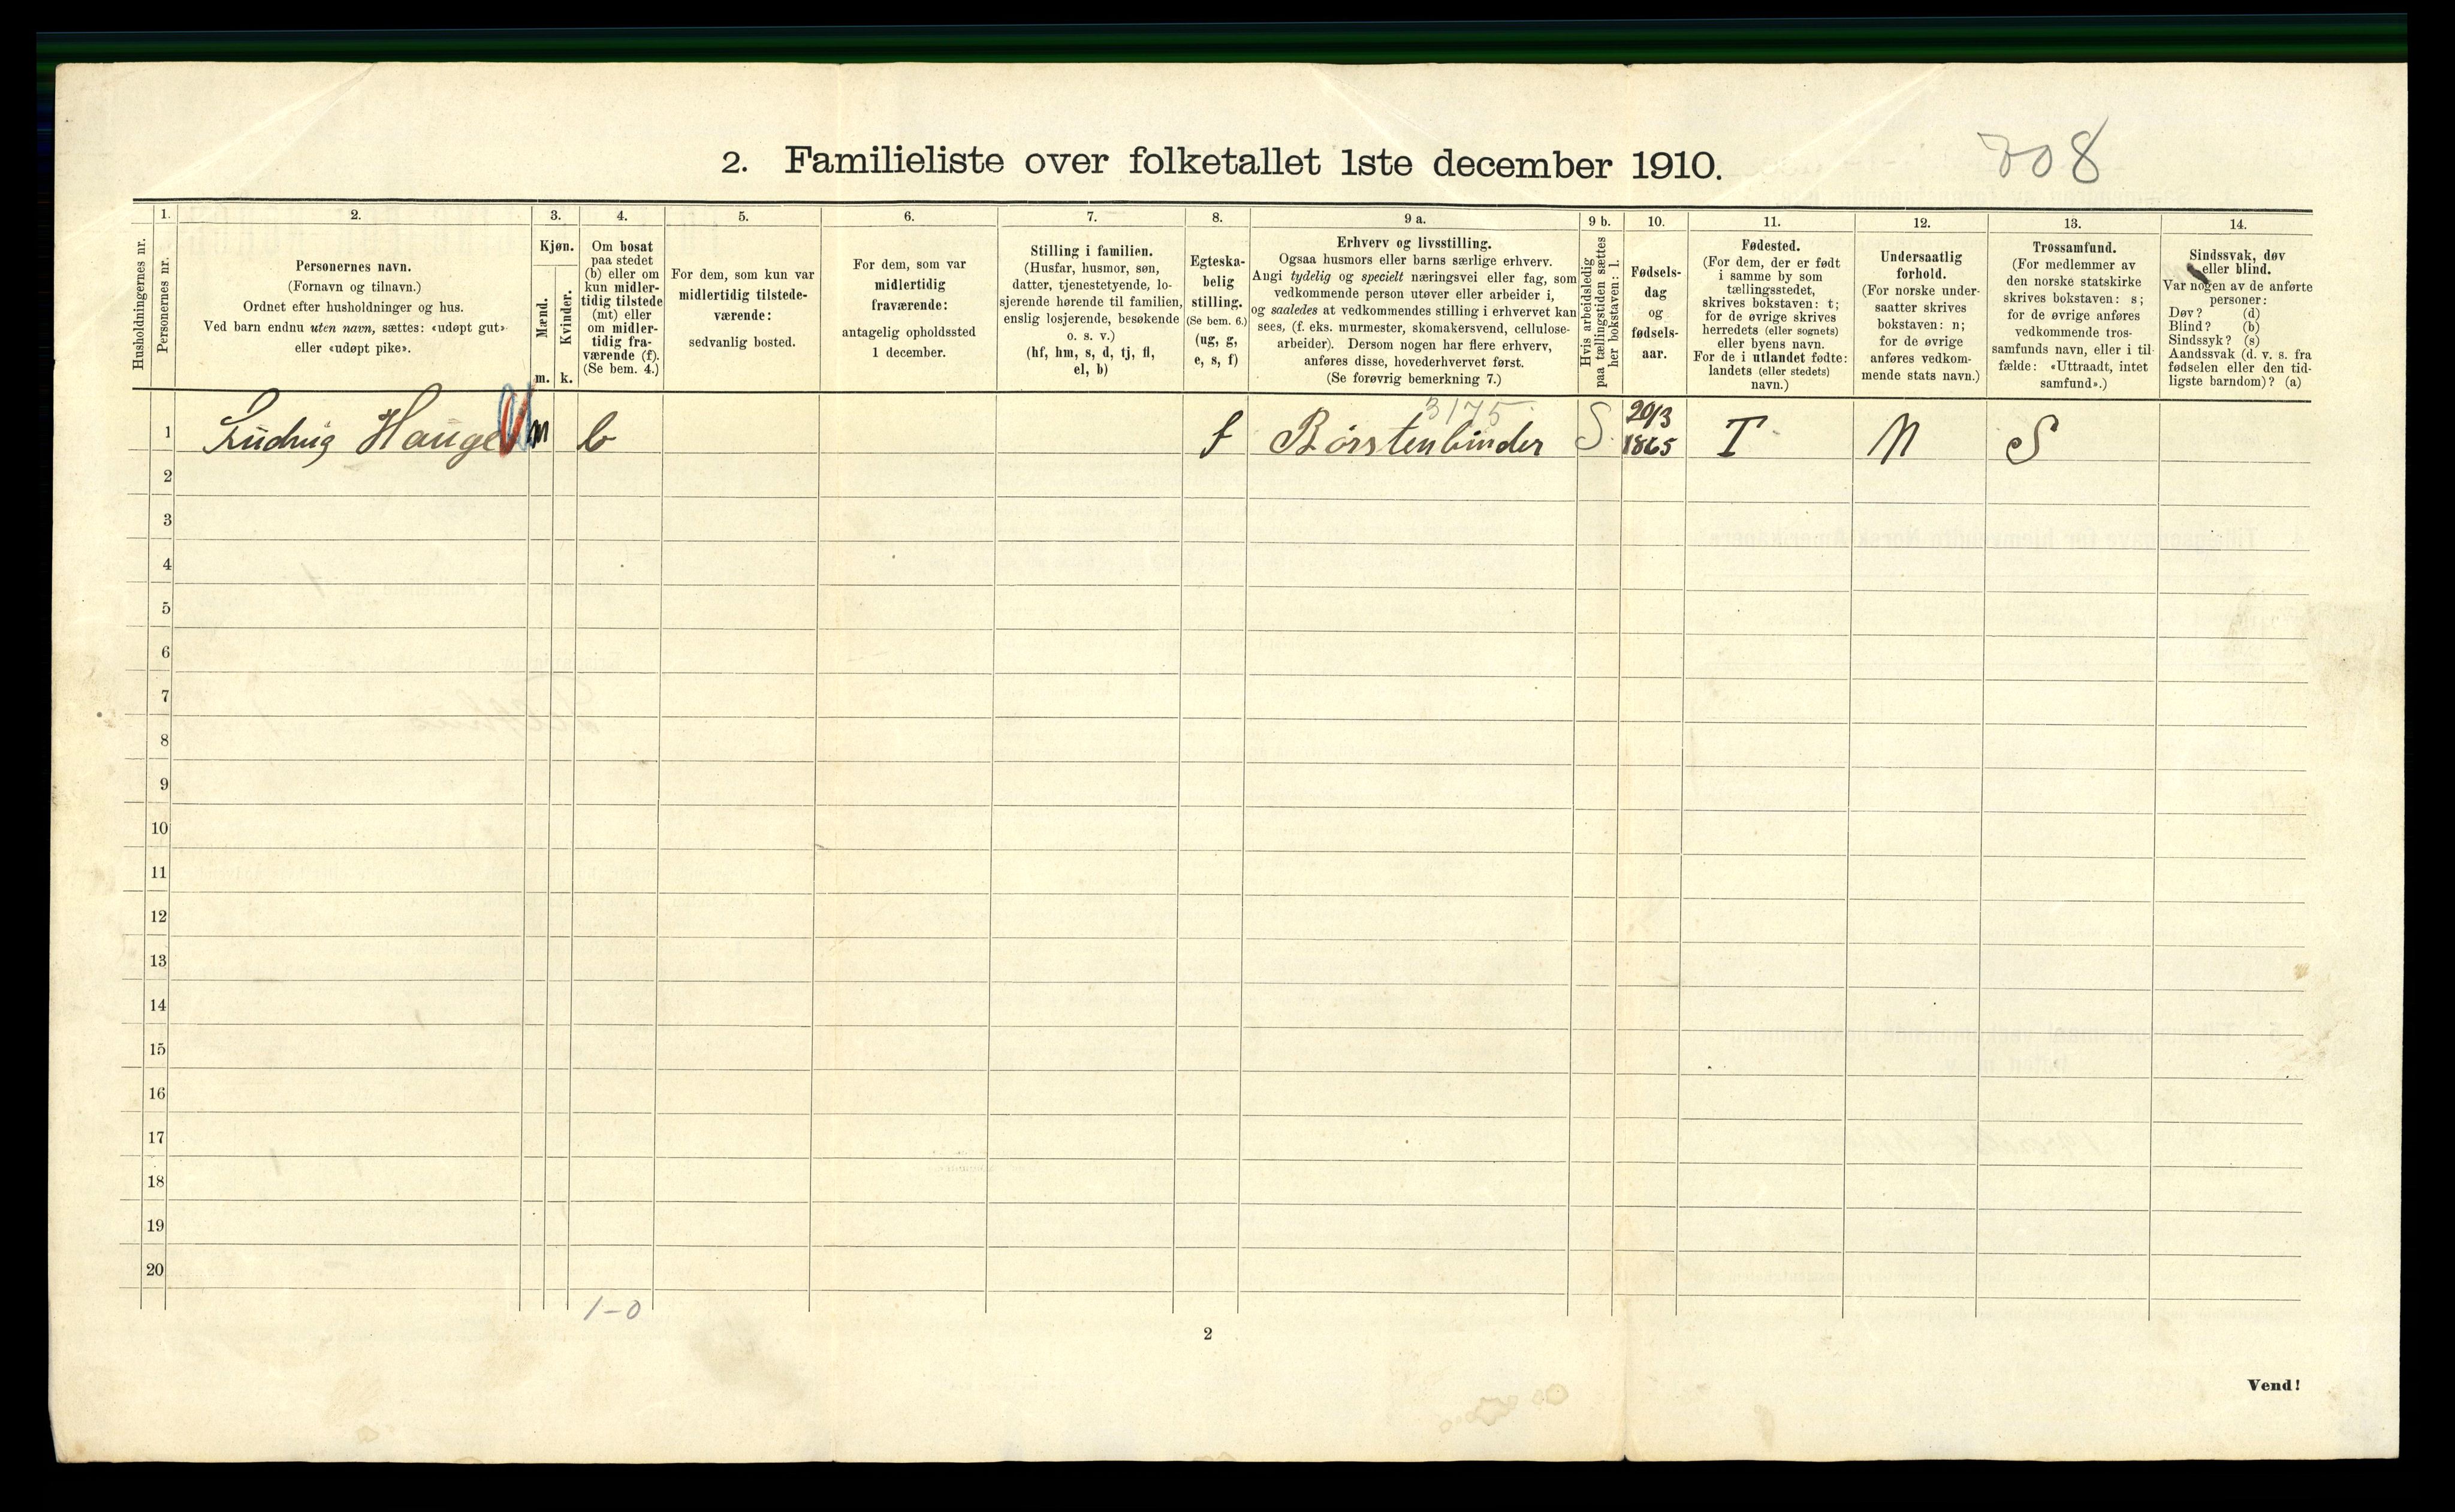 2. Familieliste over folketallet 1ste december 1910.
208
Husholdningernes nr.
1.
Personernes nr.
2.
Personernes navn.
(Fornavn og tilnavn.)
Ordnet efter husholdninger og hus.
Ved barn endnu uten navn, sættes: «udøpt gut»
eller «udøpt pike».
3.
Kjøn.
Mænd.
m.
Kvinder.
k.
4.
Om bosat
paa stedet
(b) eller om
kun midler-
tidig tilstede
(mt) eller
om midler-
tidig fra-
værende (f).
(Se bem. 4.)
5.
For dem, som kun var
midlertidig tilstede-
værende:
sedvanlig bosted.
6.
For dem, som var
midlertidig
fraværende:
antagelig opholdssted
1 december.
7.
Stilling i familien.
(Husfar, husmor, søn,
datter, tjenestetyende, lo-
sjerende hørende til familien,
enslig losjerende, besøkende
o. s. v.)
(hf, hm, s, d, tj, fl,
el, b)
8.
Egteska-
belig
stilling.
(Se bem. 6.)
(ug, g,
e, s, f)
9 a.
Erhverv og livsstilling.
Ogsaa husmors eller barns særlige erhverv.
Angi tydelig og specielt næringsvei eller fag, som
vedkommende person utøver eller arbeider i,
og saaledes at vedkommendes stilling i erhvervet kan
sees, (f. eks. murmester, skomakersvend, cellulose-
arbeider). Dersom nogen har flere erhverv,
anføres disse, hovederhvervet først.
(Se forøvrig bemerkning 7.)
9 b.
Hvis arbeidsledig
paa tællingstiden sættes
her bokstaven: l.
10.
Fødsels-
dag
og
fødsels-
aar.
11.
Fødested.
(For dem, der er født
i samme by som
tællingsstedet,
skrives bokstaven: t;
for de øvrige skrives
herredets (eller sognets)
eller byens navn.
For de i utlandet fødte:
landets (eller stedets)
navn.)
12.
Undersaatlig
forhold.
(For norske under-
saatter skrives
bokstaven: n;
for de øvrige
anføres vedkom-
mende stats navn.)
13.
Trossamfund.
(For medlemmer av
den norske statskirke
skrives bokstaven: s;
for de øvrige anføres
vedkommende tros-
samfunds navn, eller i til-
fælde: «Uttraadt, intet
samfund».)
14.
Sindssvak, døv
eller blind.
Var nogen av de anførte
personer:
Døv? (d)
Blind? (b)
Sindssyk? (s)
Aandssvak (d. v. s. fra
fødselen eller den tid-
ligste barndom)? (a)
3175
1 Ludvig Hauge m b f Börstenbinder S. 20/3 1865 T N S
2
3
4
5
6
7
8
9
10
11
12
13
14
15
16
17
18
19
20
1-0
2
Vend!